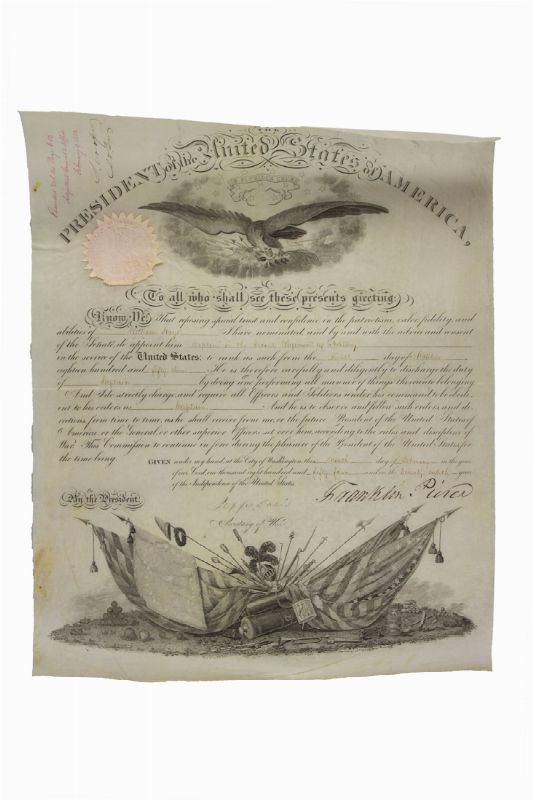 THE
PRESIDENT of the United States of AMERICA,
To all who shall see these presents greeting:
Know Ye, That reposing special trust and confidence in the patriotism, valor, fidelity, and
abilities of William Hays I have nominated, and by and with the advice and consent
of the Senate, do appoint him Captain in the Second Regiment of Artillery
in the service of the United States: to rank as such from the day of October
eighteen hundred and fifty three He is therefore carefully and diligently to discharge the duty
of Captain by doing and performing all manner of things thereunto belonging.
And I do strictly charge, and require all Officers and Soldiers under his command to be obedi-
ent to his orders as Captain And he is to observe and follow such orders, and di-
rections from time to time, as he shall receive from me, or the future President of the United States of
America or the General or other superior Officers set over him, according to the rules and discipline of
War. This Commission to continue in force during the pleasure of the President of the United States, for
the time being.
GIVEN under my hand, at the City of Washington, this day of February in the year
of our Lord, one thousand eight hundred and fifty four and in the Seventy eighth year
of the Independence of the United States.
By the President:
Franklin Pierce
Jeffer. Davis
Secretary of War.